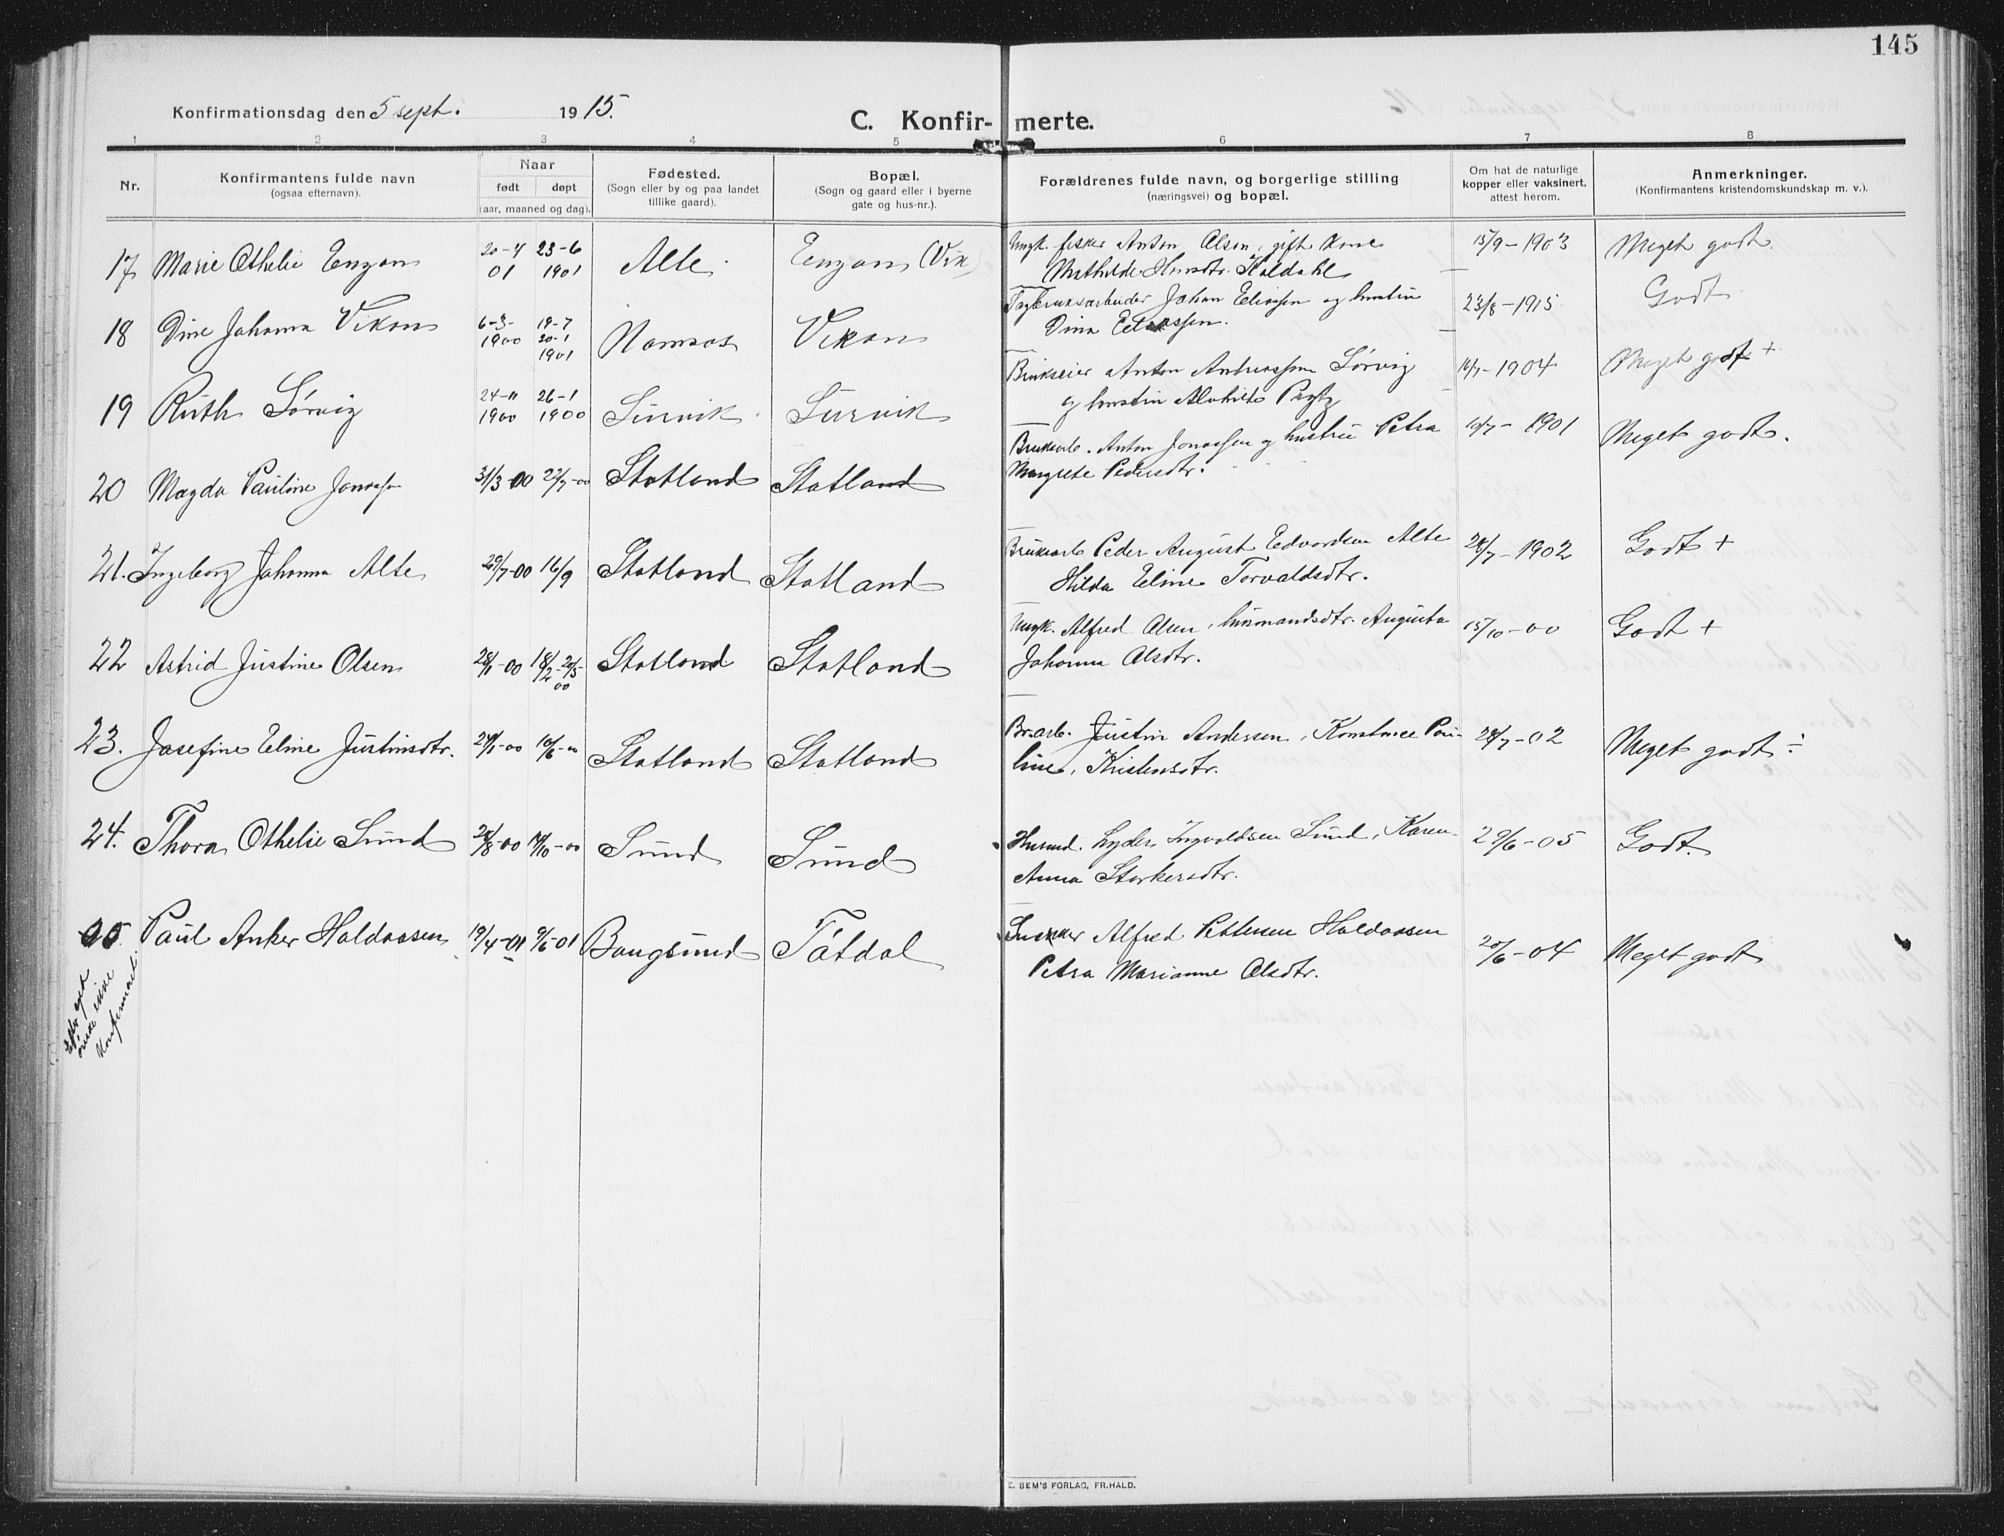 145
Konfirmationsdag den 5 sept. 1915.
C. Konfir- merte.
1 2 3 4 5 6 7 8
Nr.
Konfirmantens fulde navn
(ogsaa efternavn).
Naar
født døpt
(aar, maaned og dag).
Fødested.
(Sogn eller by og paa landet
tillike gaard).
Bopæl.
(Sogn og gaard eller i byerne
gate og hus-nr.).
Forældrenes fulde navn, og borgerlige stilling
(næringsvei) og bopæl.
Om hat de naturlige
kopper eller vaksinert,
attest herom.
Anmerkninger.
(Konfirmantens kristendomskundskap m. v.).
17 Marie Othelie Enzon 20-4 23-6 Alte. Enzon (Vik) Ungk. fisker Anton Olsen, gift Kone 15/9-1903 Meget godt.
01 1901 Mathilde Kaldahl
18 Dine Johanna Vikan 6-3- 19-7 Namsos Vikan Johan Eliassen og hustru 23/8-1915. Godt
1900 20-1 Dina Eliassen.
1901
19 Ruth Sørvig 24-11 26-1 Survik. Survik Brukseier Anton Andreassen Sørvig 16/7-1904 Meget godt +
1900 1900 og hustru
20 Magda Pauline Jonassen 31/3-00 27/7-00 Statland Statland Bruksarb. Anton Jonassen og hustru Petra 10/7-1901 Meget godt.
Margrete Pedersdtr.
21. Ingeborg Johanna Alte 29/7-00 16/9 Statland Statland Bruksarb Peder August Edvardsen Alte 28/7-1902 Godt +
Hilda Eline Torvaldsdtr.
22 Astrid Justine Olsen 28/1-00 18/2-20/5 Statland Statland Ungk. Alfred Olsen, husmandsdtr. Augusta 15/10-00 Godt +
00 Johanna Olsdtr.
23. Josefine Eline Justinsdtr. 29/1-00 10/6-00 Statland Statland Br.arb. Justin Andersen, Konstance Pau- 28/7-02 Meget godt ÷
line, Kristensdtr.
24. Thora Othelie Sund 28/8-00 14/10-00 Sund Sund Husmd. Lyder Ingvaldsen Sund, Karen 29/6-05 Godt.
Anna Storkersdtr.
25. Paul Anker Haldaasen 19/4-01 9/6-01 Bangsund Tøtdal Alfred Pettersen Haldaasen 20/6-04 Meget godt
Petra Marianne Olsdtr.
Efter eget
ønske ikke
konfirmert.
E. SEM'S FORLAG, FR.HALD.